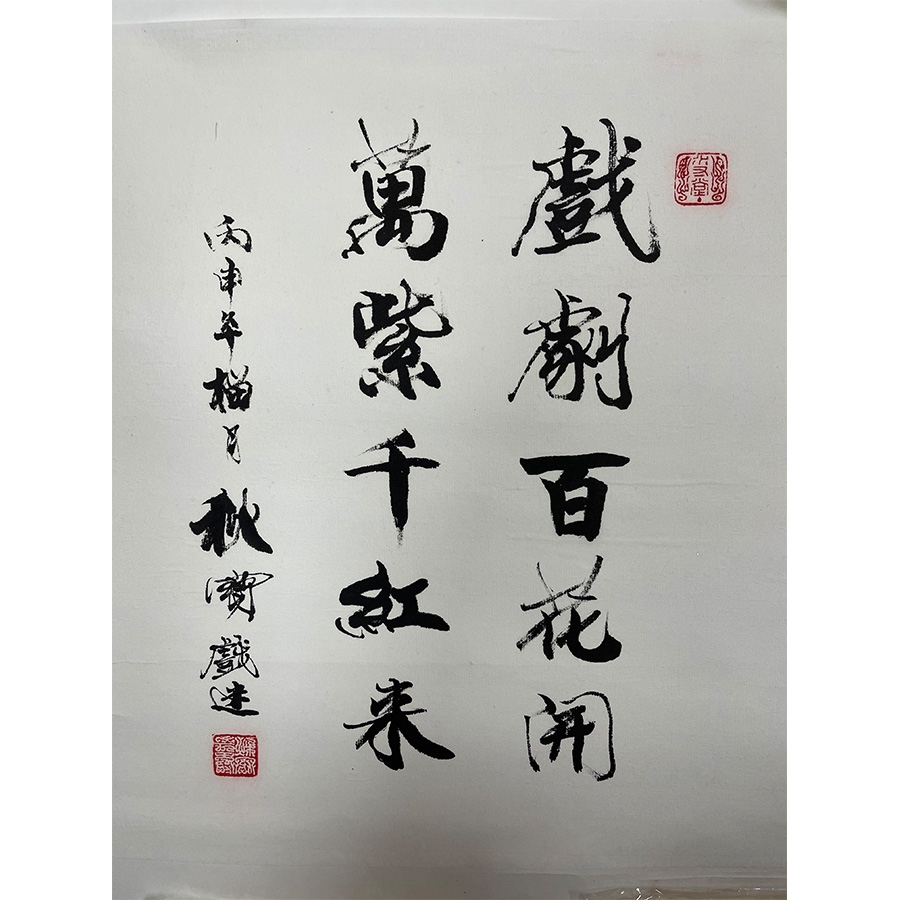 戲劇百花開
萬紫千紅来
丙申年榴月 秋實戲迷